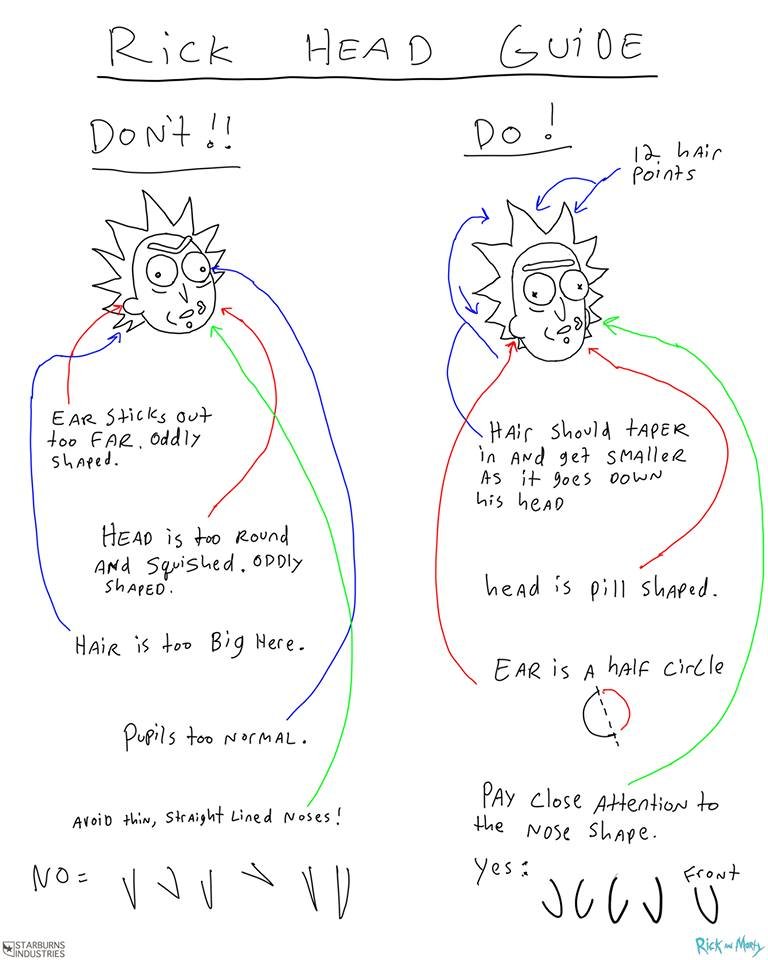 Rick HEAD GUiDE
DON't!!
EAR Sticks out
too FAR. Oddly
shaped.
HEAD is too Round
AND Squished. ODDly
SHAPED.
HAIR is too Big Here.
Pupils too NORMAL.
AVOID thin, StRAight Lined Noses!
NO =
Do!
12 hAiR
Points
HAiR Should tAPER
in AND get SMAlleR
AS it goes DOWN
his heAD
heAD is pill SHAPED.
EAR is A hAlF CiRcle
PAY Close AttentioN to
the NOSE SHAPE.
Yes:
FRONt
STARBURNS
INDUSTRIES
Rick AND Morty